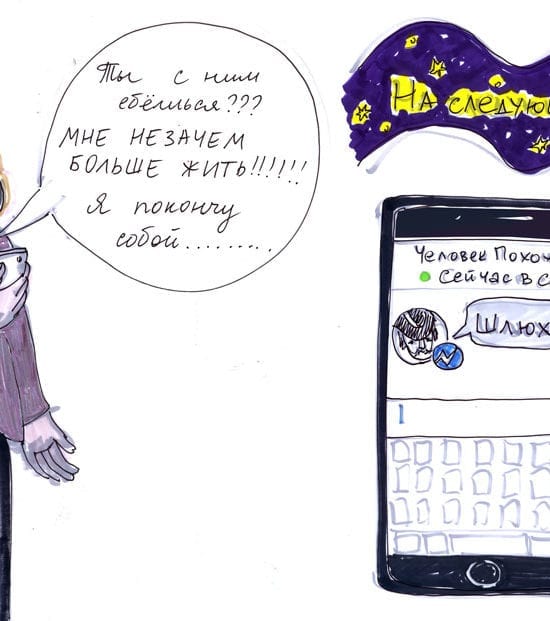 Ты с ним
ебёшься???
МНЕ НЕЗАЧЕМ
БОЛЬШЕ ЖИТЬ!!!!!!
Я покончу
собой.........
На следую
Человек Похож
Сейчас в с
Шлюх